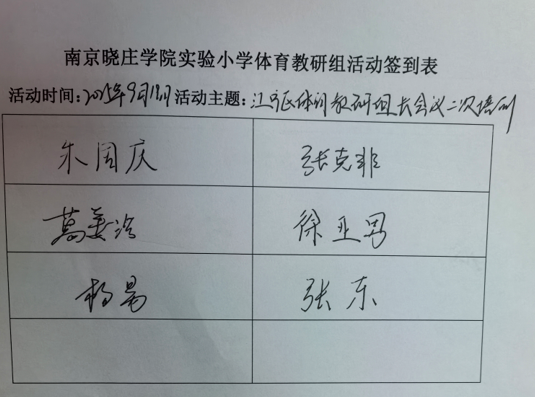 南京晓庄学院实验小学体育教研组活动签到表
活动时间：2015年9月18日 活动主题：江宁区体训教研组长会议二次培训
朱周庆 张克非
葛菱冷 徐亚男
杨易 张东